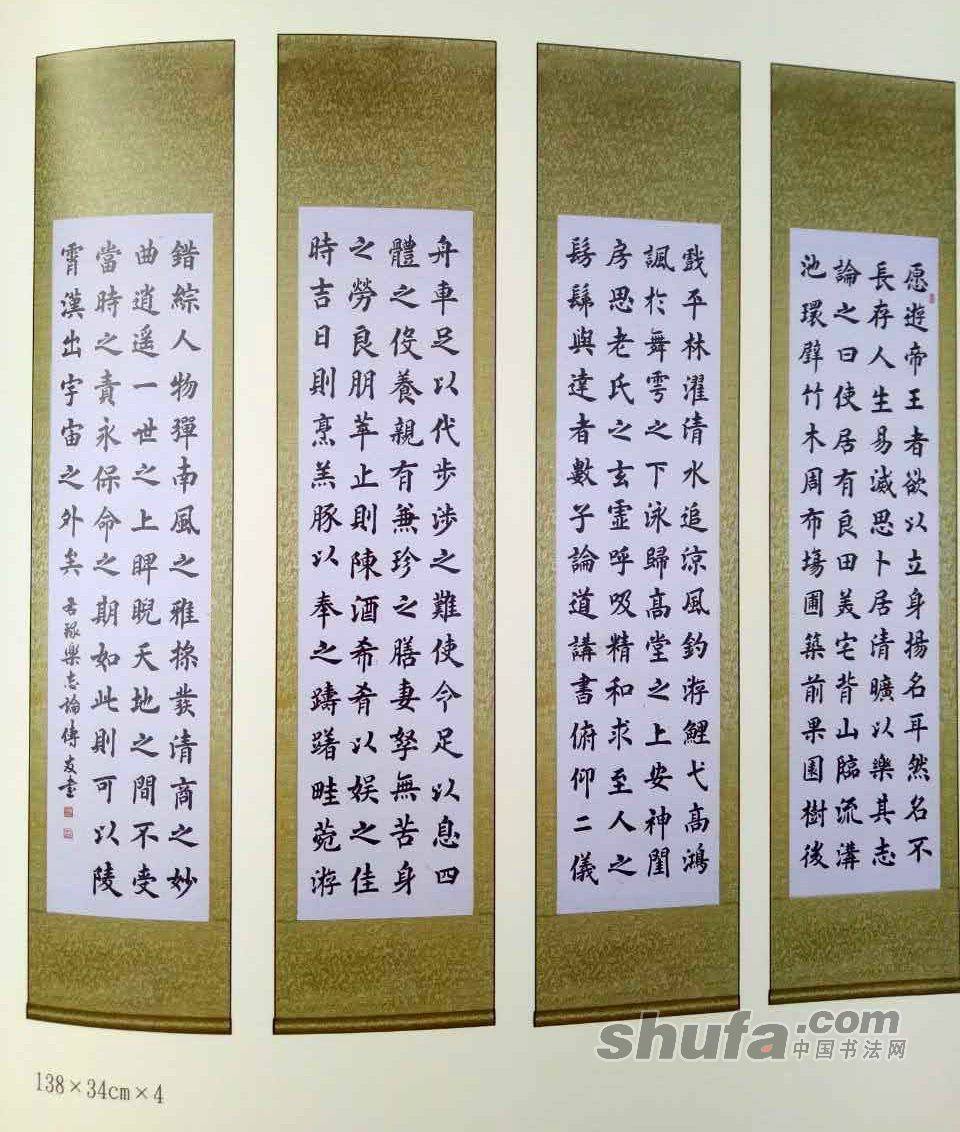 愿遊帝王者欲以立身揚名耳然名不
長存人生易滅思卜居清曠以樂其志
論之曰使居有良田美宅背山臨流溝
池環竹木周布塲圃築前果園樹後
戲平林濯清水追涼風釣游鯉弋高鴻
諷於舞雩之下泳歸高堂之上安神閨
房思老氏之玄虛呼吸精和求至人之
髣髴與達者數子論道講書俯仰二儀
舟車足以代步涉之難使令足以息四
體之役養親有兼珍之膳妻孥無苦身
之勞良朋萃止則陳酒希肴以娱之佳
時吉日則烹羔豚以奉之躊躇畦菀游
錯綜人物彈南風之雅操發清商之妙
曲逍遥一世之上睥睨天地之間不受
當時之責永保命之期如此則可以陵
霄漢出宇宙之外矣 樂志論傅友書
138×34cm×4
shufa.com
中国书法网